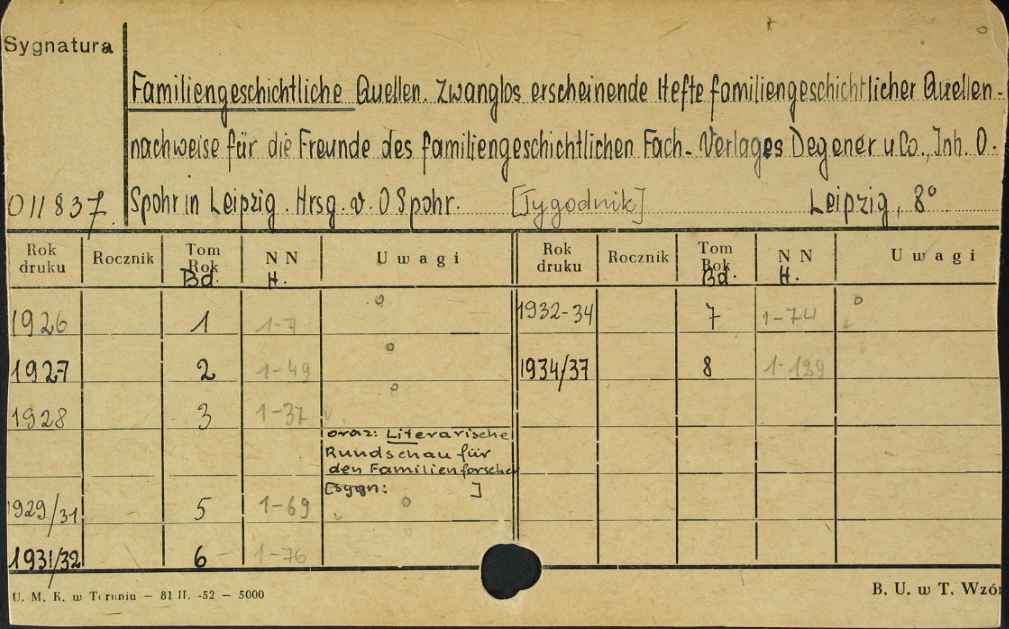 Sygnatura
Familiengeschichtliche Quellen. Zwanglos erscheinende Hefte familiengeschichtlicher Quellen-
nachweise für die Freunde des familiengeschichtlichen Fach-Verlages Degener u Co., Inh. O.
011837. Spohr in Leipzig. Hrsg. v. O Spohr. [Tygodnik] Leipzig, 8°
Rok druku Rocznik Tom Rok Bd. NN H. Uwagi Rok druku Rocznik Tom Rok Bd. NN H. Uwagi
1926 1 1-7 1932-34 7 1-74
1927 2 1-49 1934/37 8 1-139
1928 3 1-37
oraz: Literarische
Rundschau für
den Familienforscher
[sygn: ]
1929/31 5 1-69
1931/32 6 1-76
U. M. K. w Toruniu — 81 II. -52 — 5000 B. U. w T. Wzór